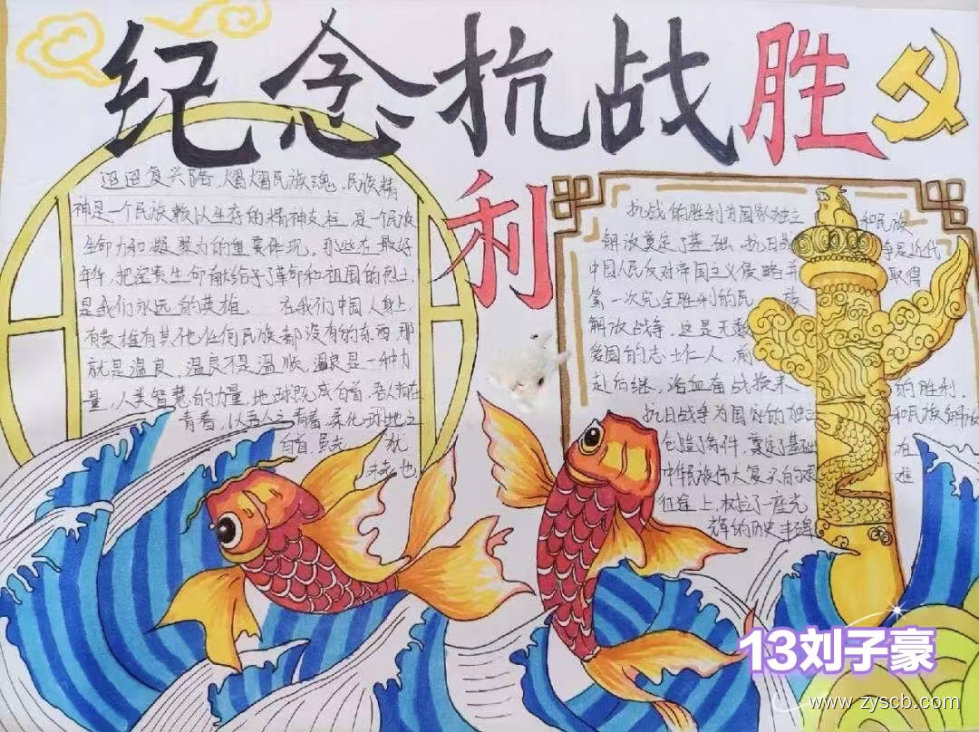 纪念抗战胜
利
迢迢复兴路，熠熠民族魂，民族精
神是一个民族赖以生存的精神支柱，是一个民族
生命力和凝聚力的重要体现。那些在最好
年华，把宝贵生命献给了革命和祖国的烈士，
是我们永远的英雄。在我们中国人身上，
有教雄有其他任何民族都没有的东西那
就是温良，温良不是温顺，温良是一种力
量，人类智慧的力量，
青春，
抗战的胜利为国家独立和民族
解放奠定了基础。抗日是争是近代
中国人民反对帝国主义侵略并取得
第一次完全胜利的民族
解放战争，这是无数
爱国的志士仁人，前
赴后继，浴血奋战换来的胜利。
抗日战争为国家的独立和民族解放
创造了条件，奠定了基础 在
中华民族伟大复兴的艰难
征途上，树起了一座光
辉的历史丰碑
13刘子豪
www.zyscb.com